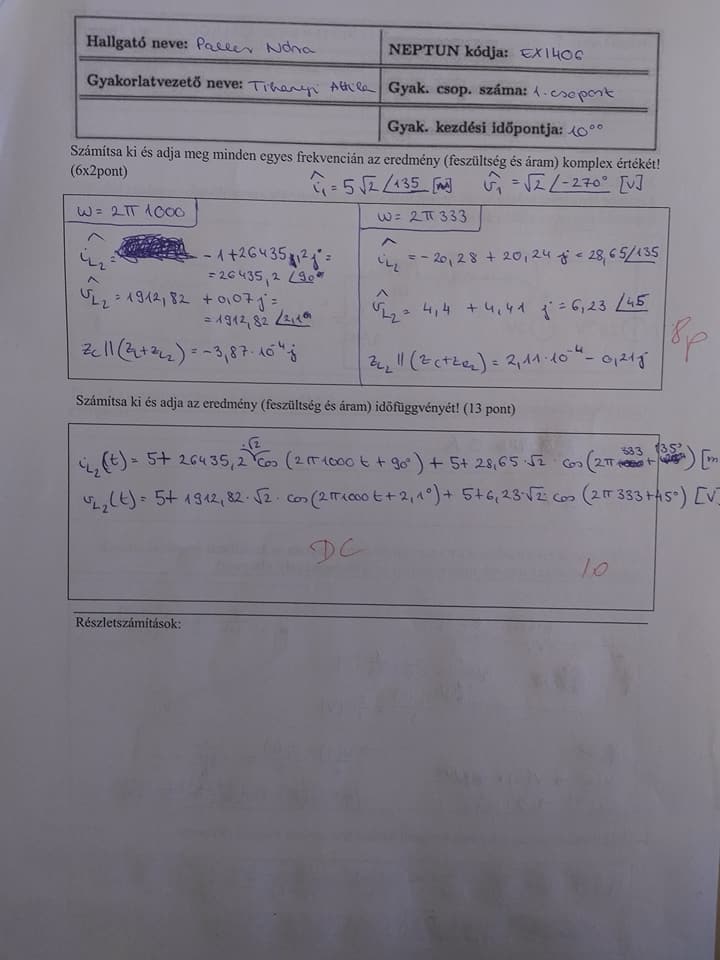 Hallgató neve: Paller Nóra NEPTUN kódja: EX140G
Gyakorlatvezető neve: Tihanyi Attila Gyak. csop. száma: 1. csoport
Gyak. kezdési időpontja: 10⁰⁰
Számítsa ki és adja meg minden egyes frekvencián az eredmény (feszültség és áram) komplex értékét!
(6x2pont) î₁ = 5√2 ∠135 v̂₁ = √2 ∠-270° [V]
ω = 2π 1000
î_L₂ = -1+26435,2j =
= 26435,2 ∠90°
v̂_L₂ = 1912,82 + 0,07j =
= 1912,82 ∠2,1°
Z_C || (Z_L+Z_L₂) = -3,87·10⁻⁴j
ω = 2π 333
î_L₂ = -20,28 + 20,24 j = 28,65∠135
v̂_L₂ = 4,4 + 4,41 j = 6,23 ∠45
Z_L₂ || (Z_C+Z_R₂) = 2,11·10⁻⁴ - 0,21j
8p
Számítsa ki és adja az eredmény (feszültség és áram) időfüggvényét! (13 pont)
i_L₂(t) = 5+ 26435,2·√2 cos (2π1000t + 90°) + 5+28,65·√2 cos(2π 333 + 135°) [m
v_L₂(t) = 5+ 1912,82·√2· cos(2π1000t+2,1°) + 5+6,23·√2 cos (2π 333+45°) [V]
DC
10
Részletszámítások: